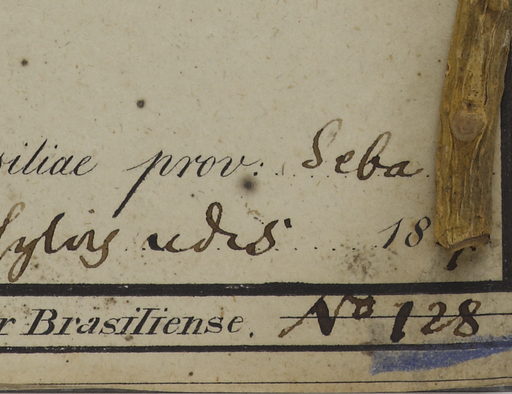 siliae prov: Seba
Sylvis udis 18
r Brasiliense. No 128